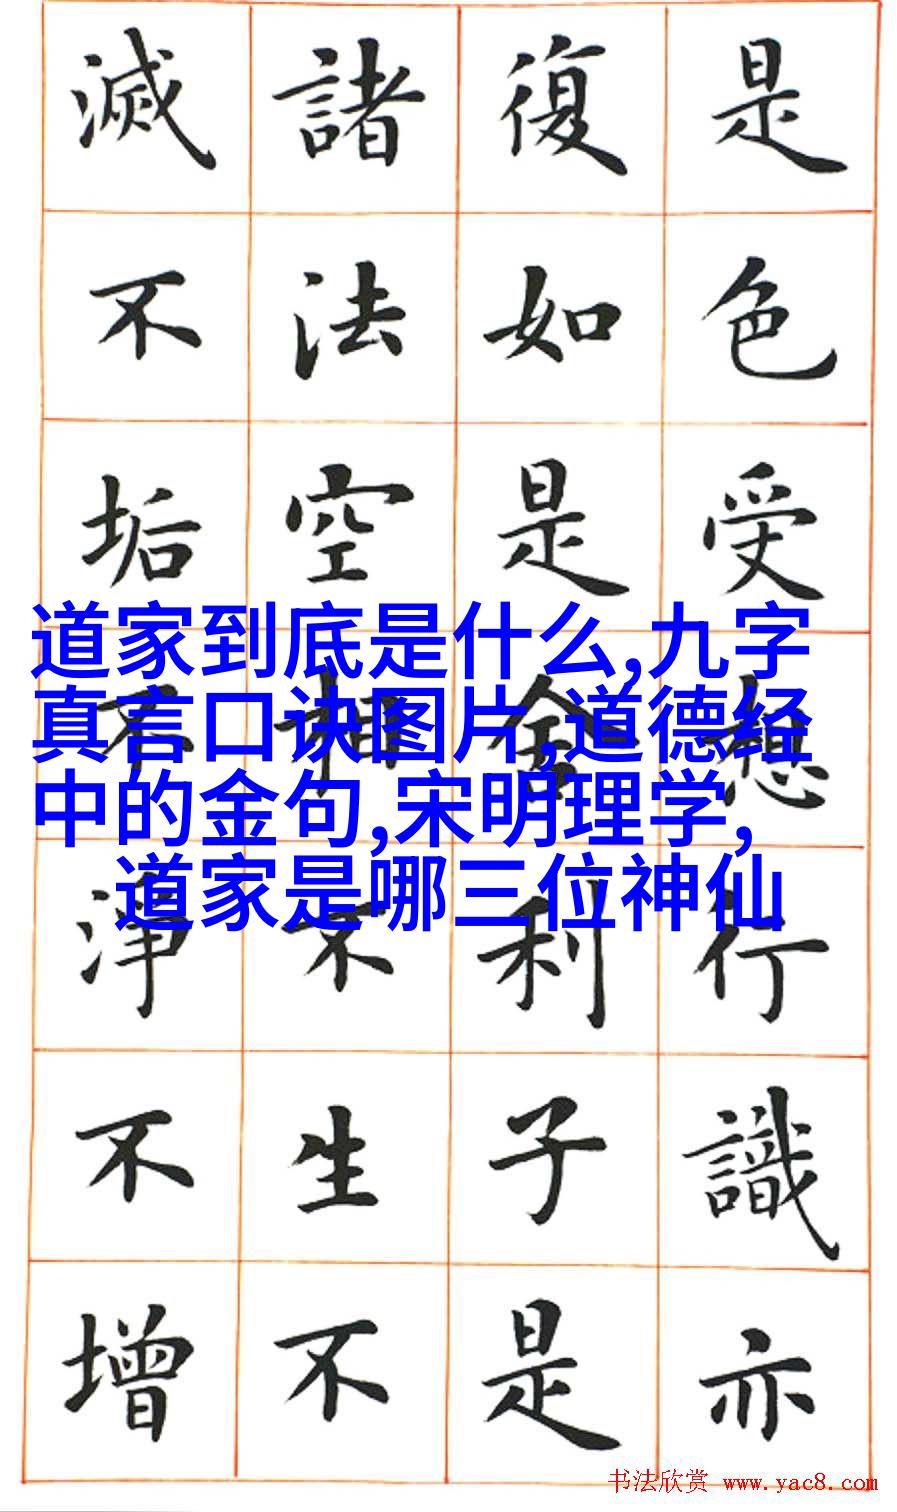 是色受想行識亦
復如是舍利子是
諸法空相不生不
滅不垢不淨不增
道家到底是什么,九字
真言口诀图片,道德经
中的金句,宋明理学,
道家是哪三位神仙
书法欣赏 www.yac8.com